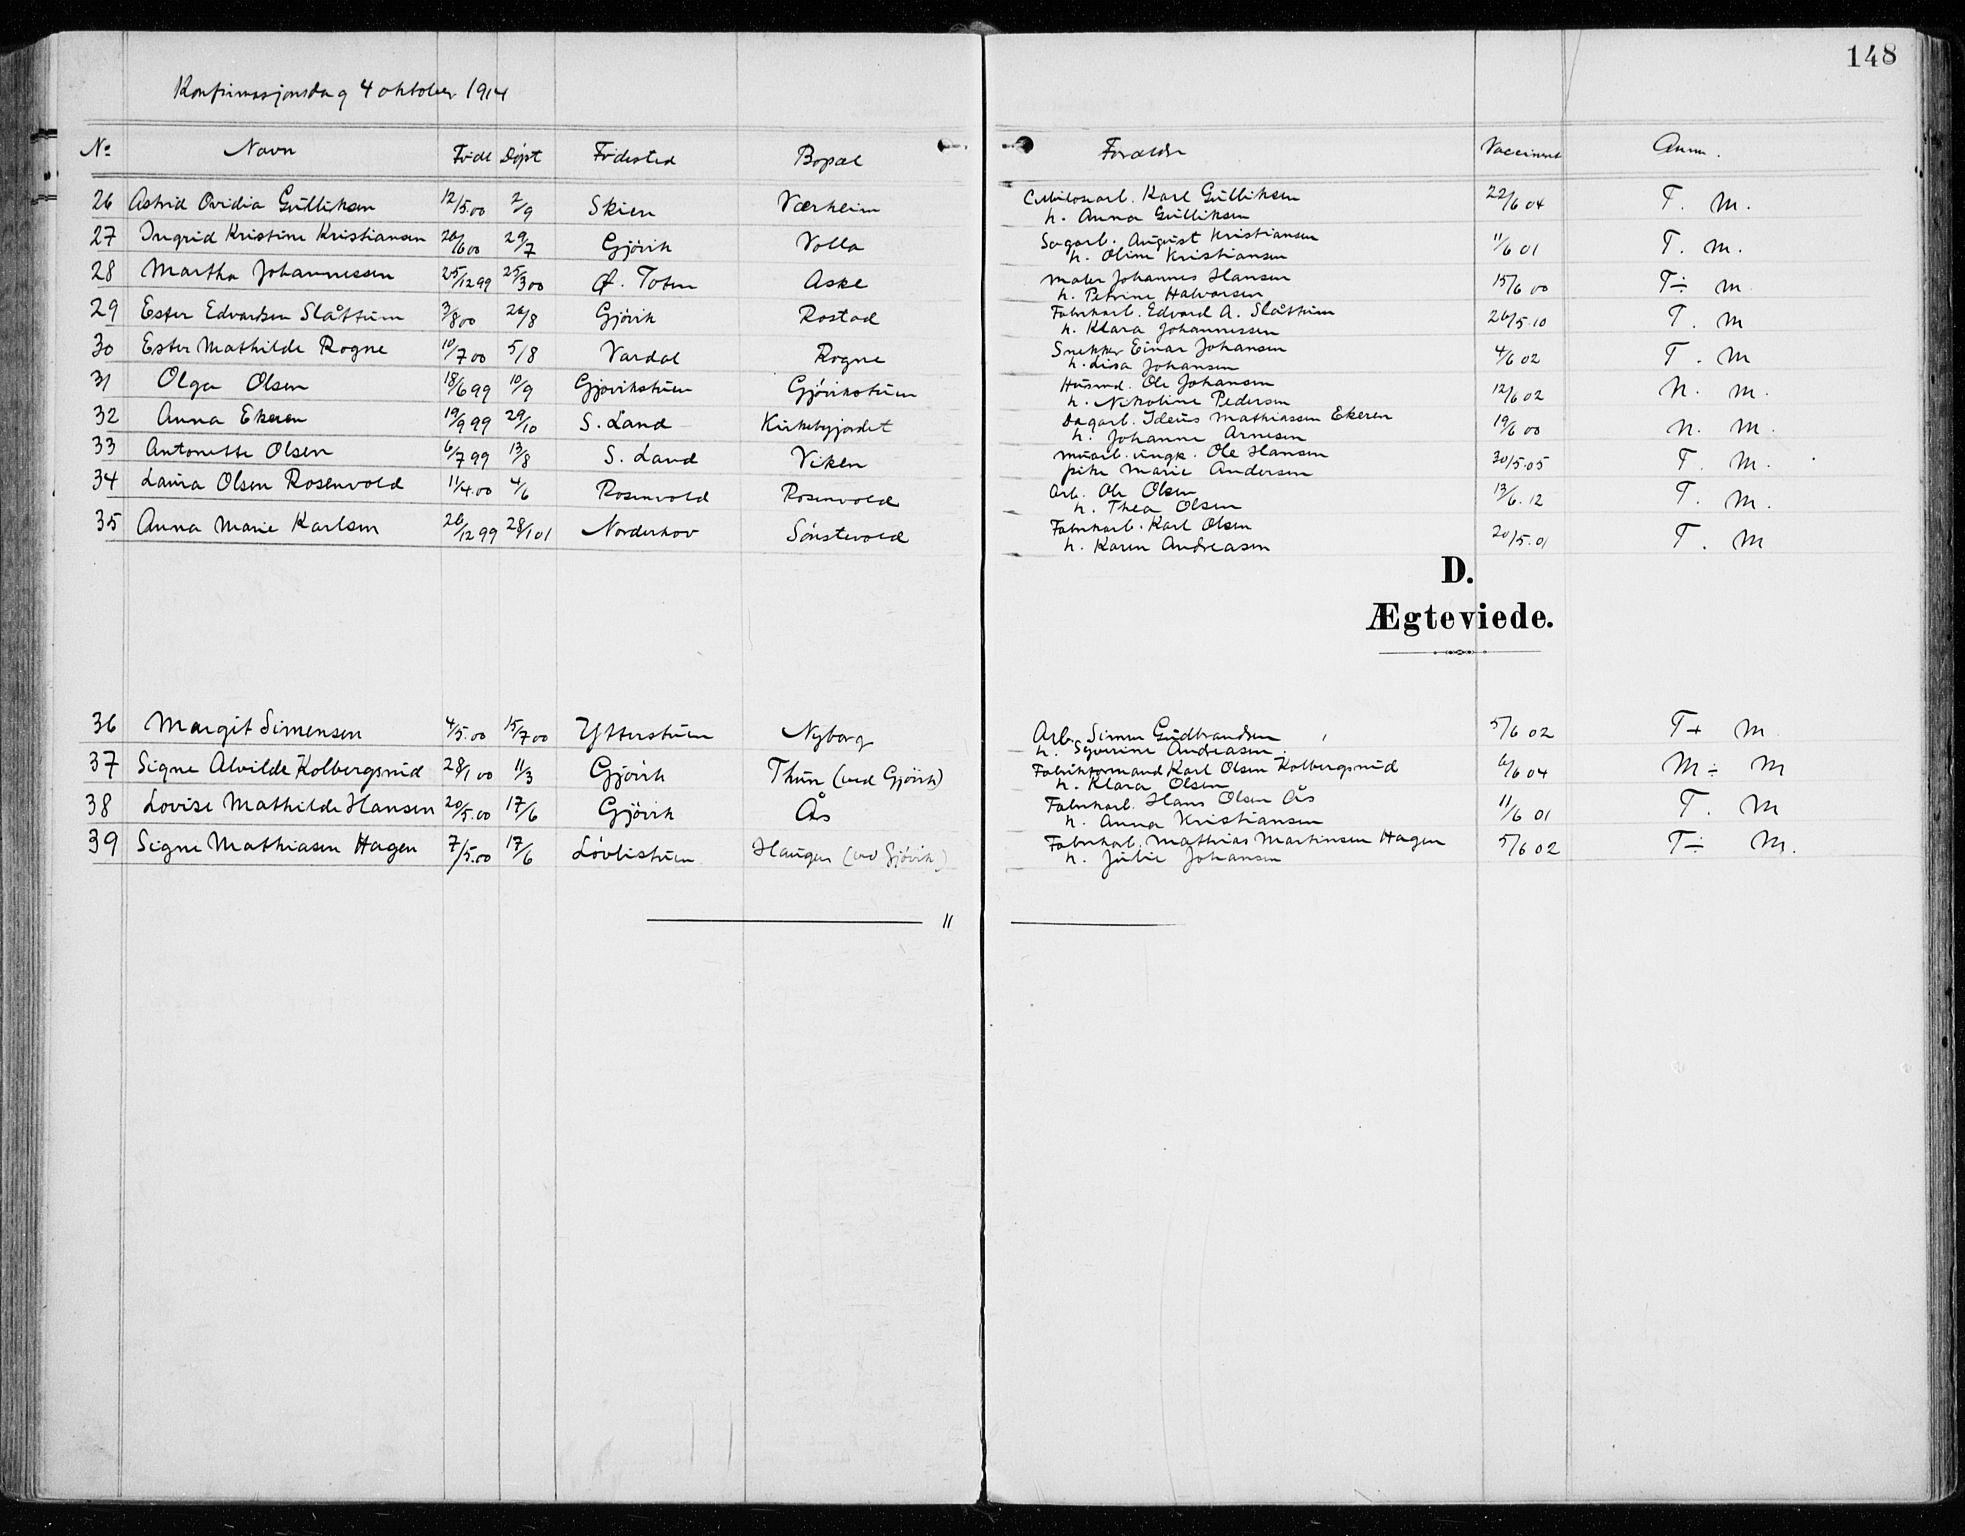 148
Konfirmasjonsdag 4 oktober 1914
No Navn Födt Döpt Födested Bopæl Foraldre Vaccineret Anm.
26 Astrid Ovidia Gulliksen 12/5.00 2/9 Skien Værheim Cellulosarb. Karl Gulliksen 22/6 04 T. M.
h. Anna Gulliksen
27 Ingrid Kristine Kristiansen 26/6 00 29/7 Gjövik Volla Sagarb. August Kristiansen 11/6 01 T. M.
h. Oline Kristiansen
28 Martha Johannessen 25/12 99 25/3 00 Ø. Toten Aske Maler Johannes Hansen 15/6 00 T÷ M
h. Petrine Halvorsen
29 Ester Edvardsen Slåttum 3/8 00 26/8 Gjövik Rostad Fabrikarb. Edvard A. Slåttum 26/5.10 T. M
h. Klara Johannessen
30 Ester Mathilde Rogne 10/7 00 5/8 Vardal Rogne Snekker Einar Johansen 4/6 02 T. M
h. Lisa Johansen
31 Olga Olsen 18/6 99 10/9 Gjövikstuen Gjövikstuen Husmd. Ole Johansen 12/6 02 N. M.
h. Nikoline Pedersen
32 Anna Ekeren 19/9 99 29/10 S. Land Kirkebyjordet Dagarb. Ideus Mathiassen Ekeren 19/6 00 N. M.
h. Johanne Arnesen
33 Antonette Olsen 6/7 99 13/8 S. Land Viken Murarb. ungk. Ole Hansen 30/5.05 T. M.
pike Marie Andersen
34 Laura Olsen Rosenvold 11/4.00 4/6 Rosenvold Rosenvold Arb. Ole Olsen 13/6.12 T. M.
h. Thea Olsen
35 Anna Marie Karlsen 26/12 99 28/1 01 Norderhov Sönstevold Fabrikarb. Karl Olsen 20/5.01 T. M
h. Karen Andreasen
D.
Ægteviede.
36 Margit Simensen 4/5.00 15/7 00 Ytterstuen Nyborg Arb. Simen Gudbrandsen 5/6 02 T+ M
h. Syverine Andreasen.
37 Signe Alvilde Kolbergsrud 28/1 00 11/3 Gjövik Thun (ved Gjövik) Fabrikformand Karl Olsen Kolbergsrud 6/6 04 M÷ M
h. Klara Olsen
38 Lovise Mathilde Hansen 20/5.00 17/6 Gjövik Ås Fabrikarb. Hans Olsen Ås 11/6 01 T. M
h. Anna Kristiansen
39 Signe Mathiasen Hagen 7/5.00 17/6 Lövlistuen Haugen (ved Gjövik) Fabrikarb. Mathias Martinsen Hagen 5/6 02 T÷ M.
h. Julie Johansen